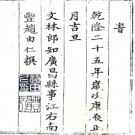 書
乾隆二十五年歲次庚辰正
月吉旦
文林郎知廣昌縣事江右南
豐趙由仁撰